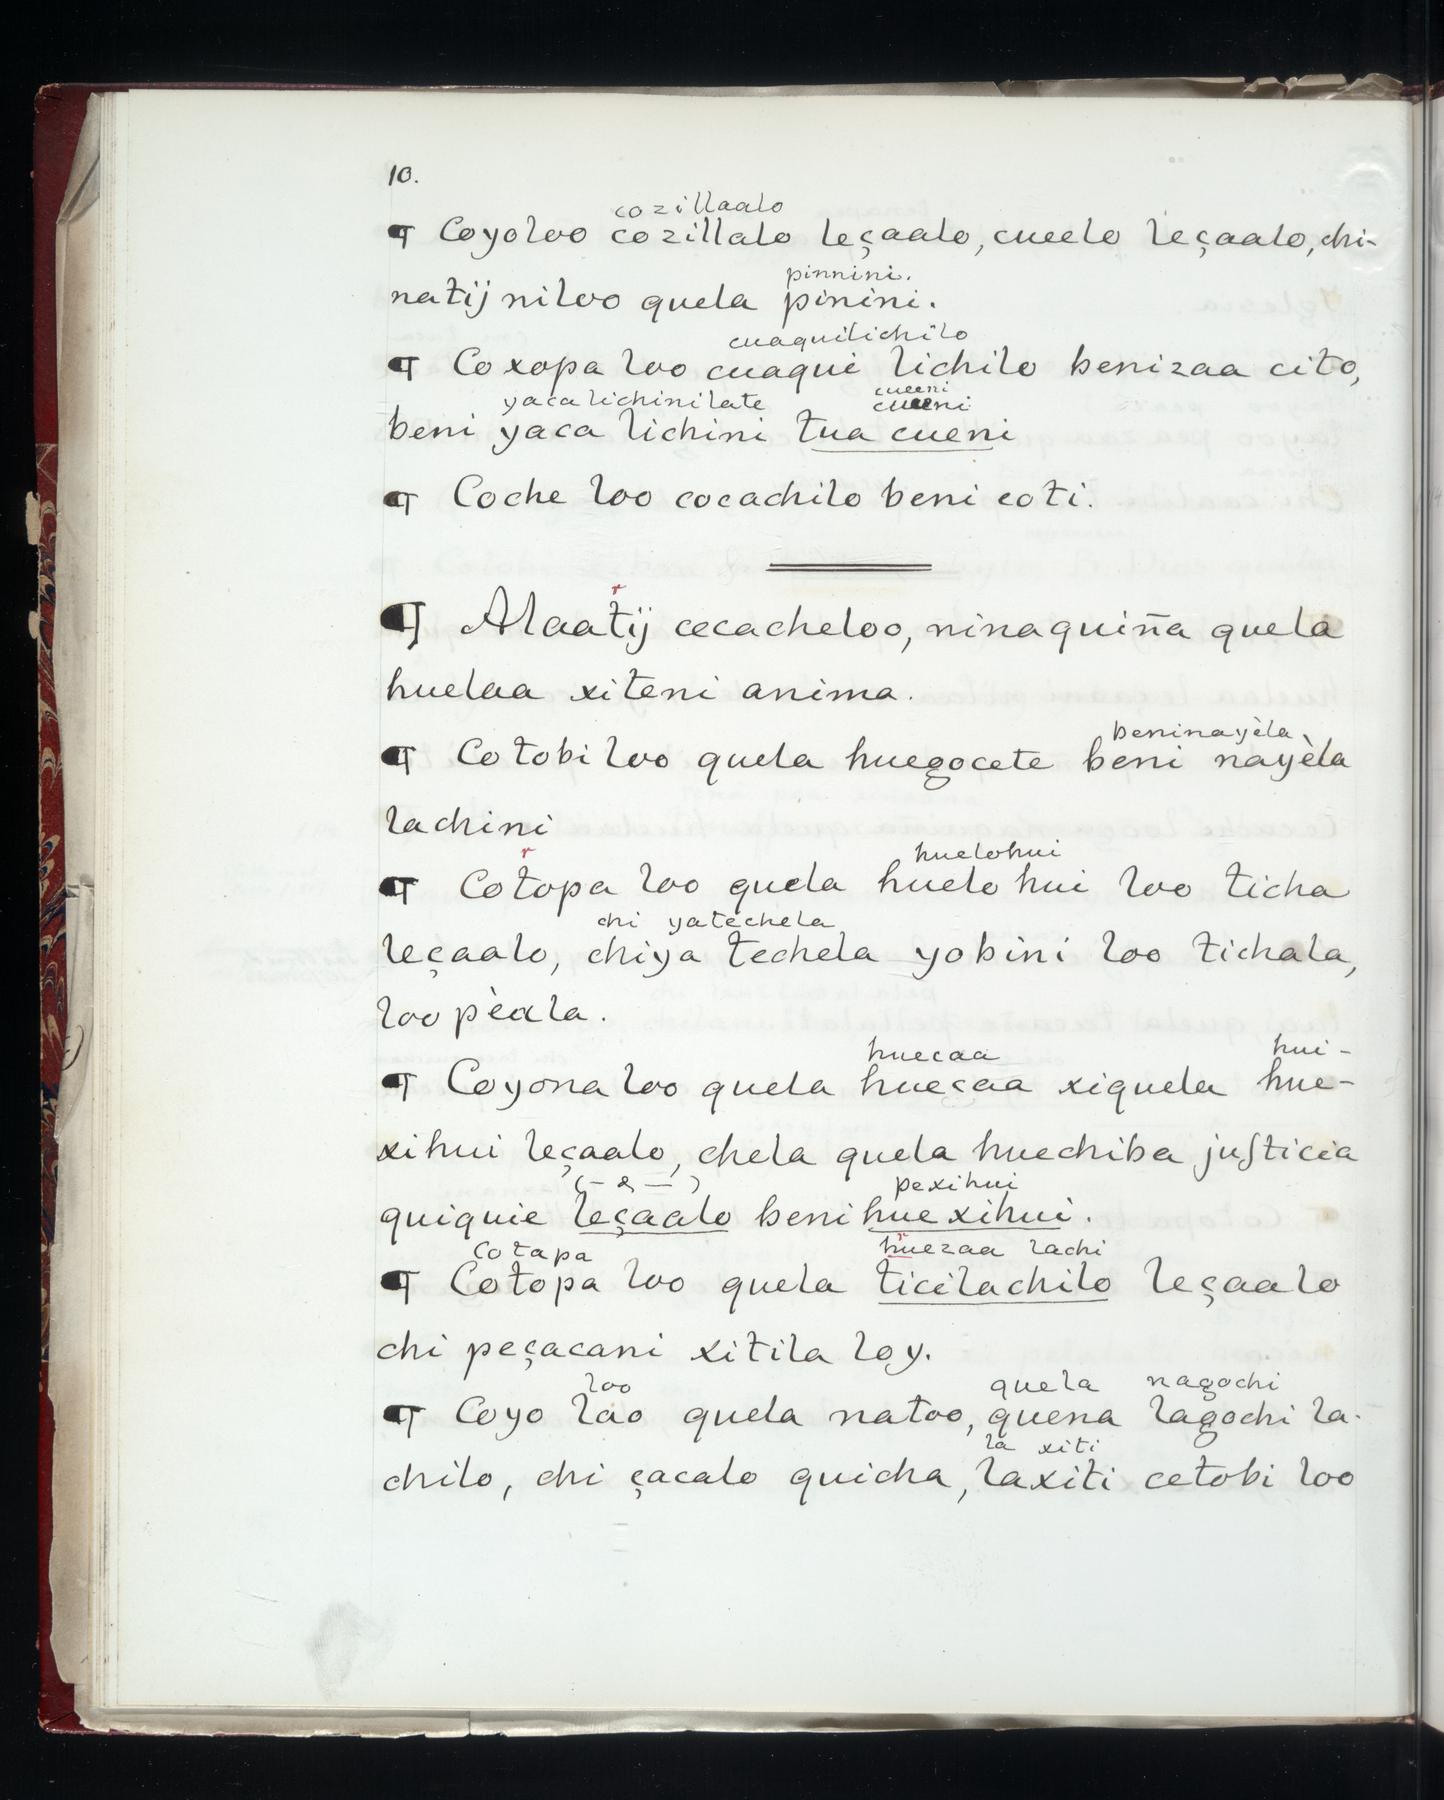 10.
cozillaalo
¶ Coyoloo cozillalo leçaalo, cueelo leçaalo, chi-
pinnini.
natij niloo quela pinini.
cuaquilichilo
¶ Coxopa loo cuaque lichilo benizaa cito,
cueeni
yaca lichinilate cueeni
beni yaca lichini tua cueni
¶ Coche loo cocachilo beni coti.
r
¶ Alaatij cecacheloo, ninaquiña quela
huelaa xiteni anima.
beninayèla
¶ Cotobi loo quela huegocete beni nayèla
lachini
r
huelohui
¶ Cotopa loo quela huelo hui loo ticha
chi yatechela
leçaalo, chiya techela yobini loo tichala,
loo pèala.
huecaa hui-
¶ Coyona loo quela hueçaa xiquela hue-
xihui leçaalo, chela quela huechiba justicia
(- & -) pexihui
quiquie leçaalo beni huexihui.
r
Cotapa huezaa lachi
¶ Cotopa loo quela ticilachilo leçaalo
chi peçacani xitila loy.
loo quela nagochi
¶ Coyo lao quela natoo, quena lagochi la-
la xiti
chilo, chi çacalo quicha, laxiti cetobi loo